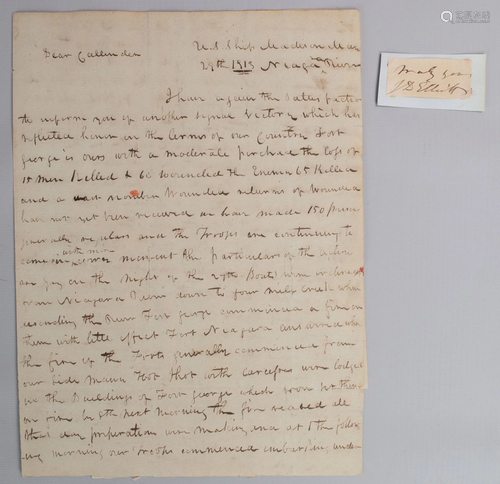 Dear Callender
U.S. Ship Madison May
27th 1813 Niaga ra River
I have again the satisfaction
to inform you of another signal victory which has
reflected honor on the arms of our Country Fort
george is ours with a moderate purchase the loss of
15 men killed & 60 wounded the Enemy 65 killed
and a number wounded returns of wounded
have not yet been received we have made 150 prison
generally and the troops are continuing to
come in the particulars of the
are on the Night of the 27th Boats were ordered
from Niagara River down to four mile creek while
descending the River Fort george commenced a fire on
them with little effect Fort Niagara when
the fire of the Forts generally commenced from
our side Many Hot Shot with were lodged
in the Buildings of Fort george which soon set them
on fire by 8th next morning the fire ceased all
that day preparation were making and at 1 the follow
ing morning our troops commenced embarking under
truly your
J D Elliott